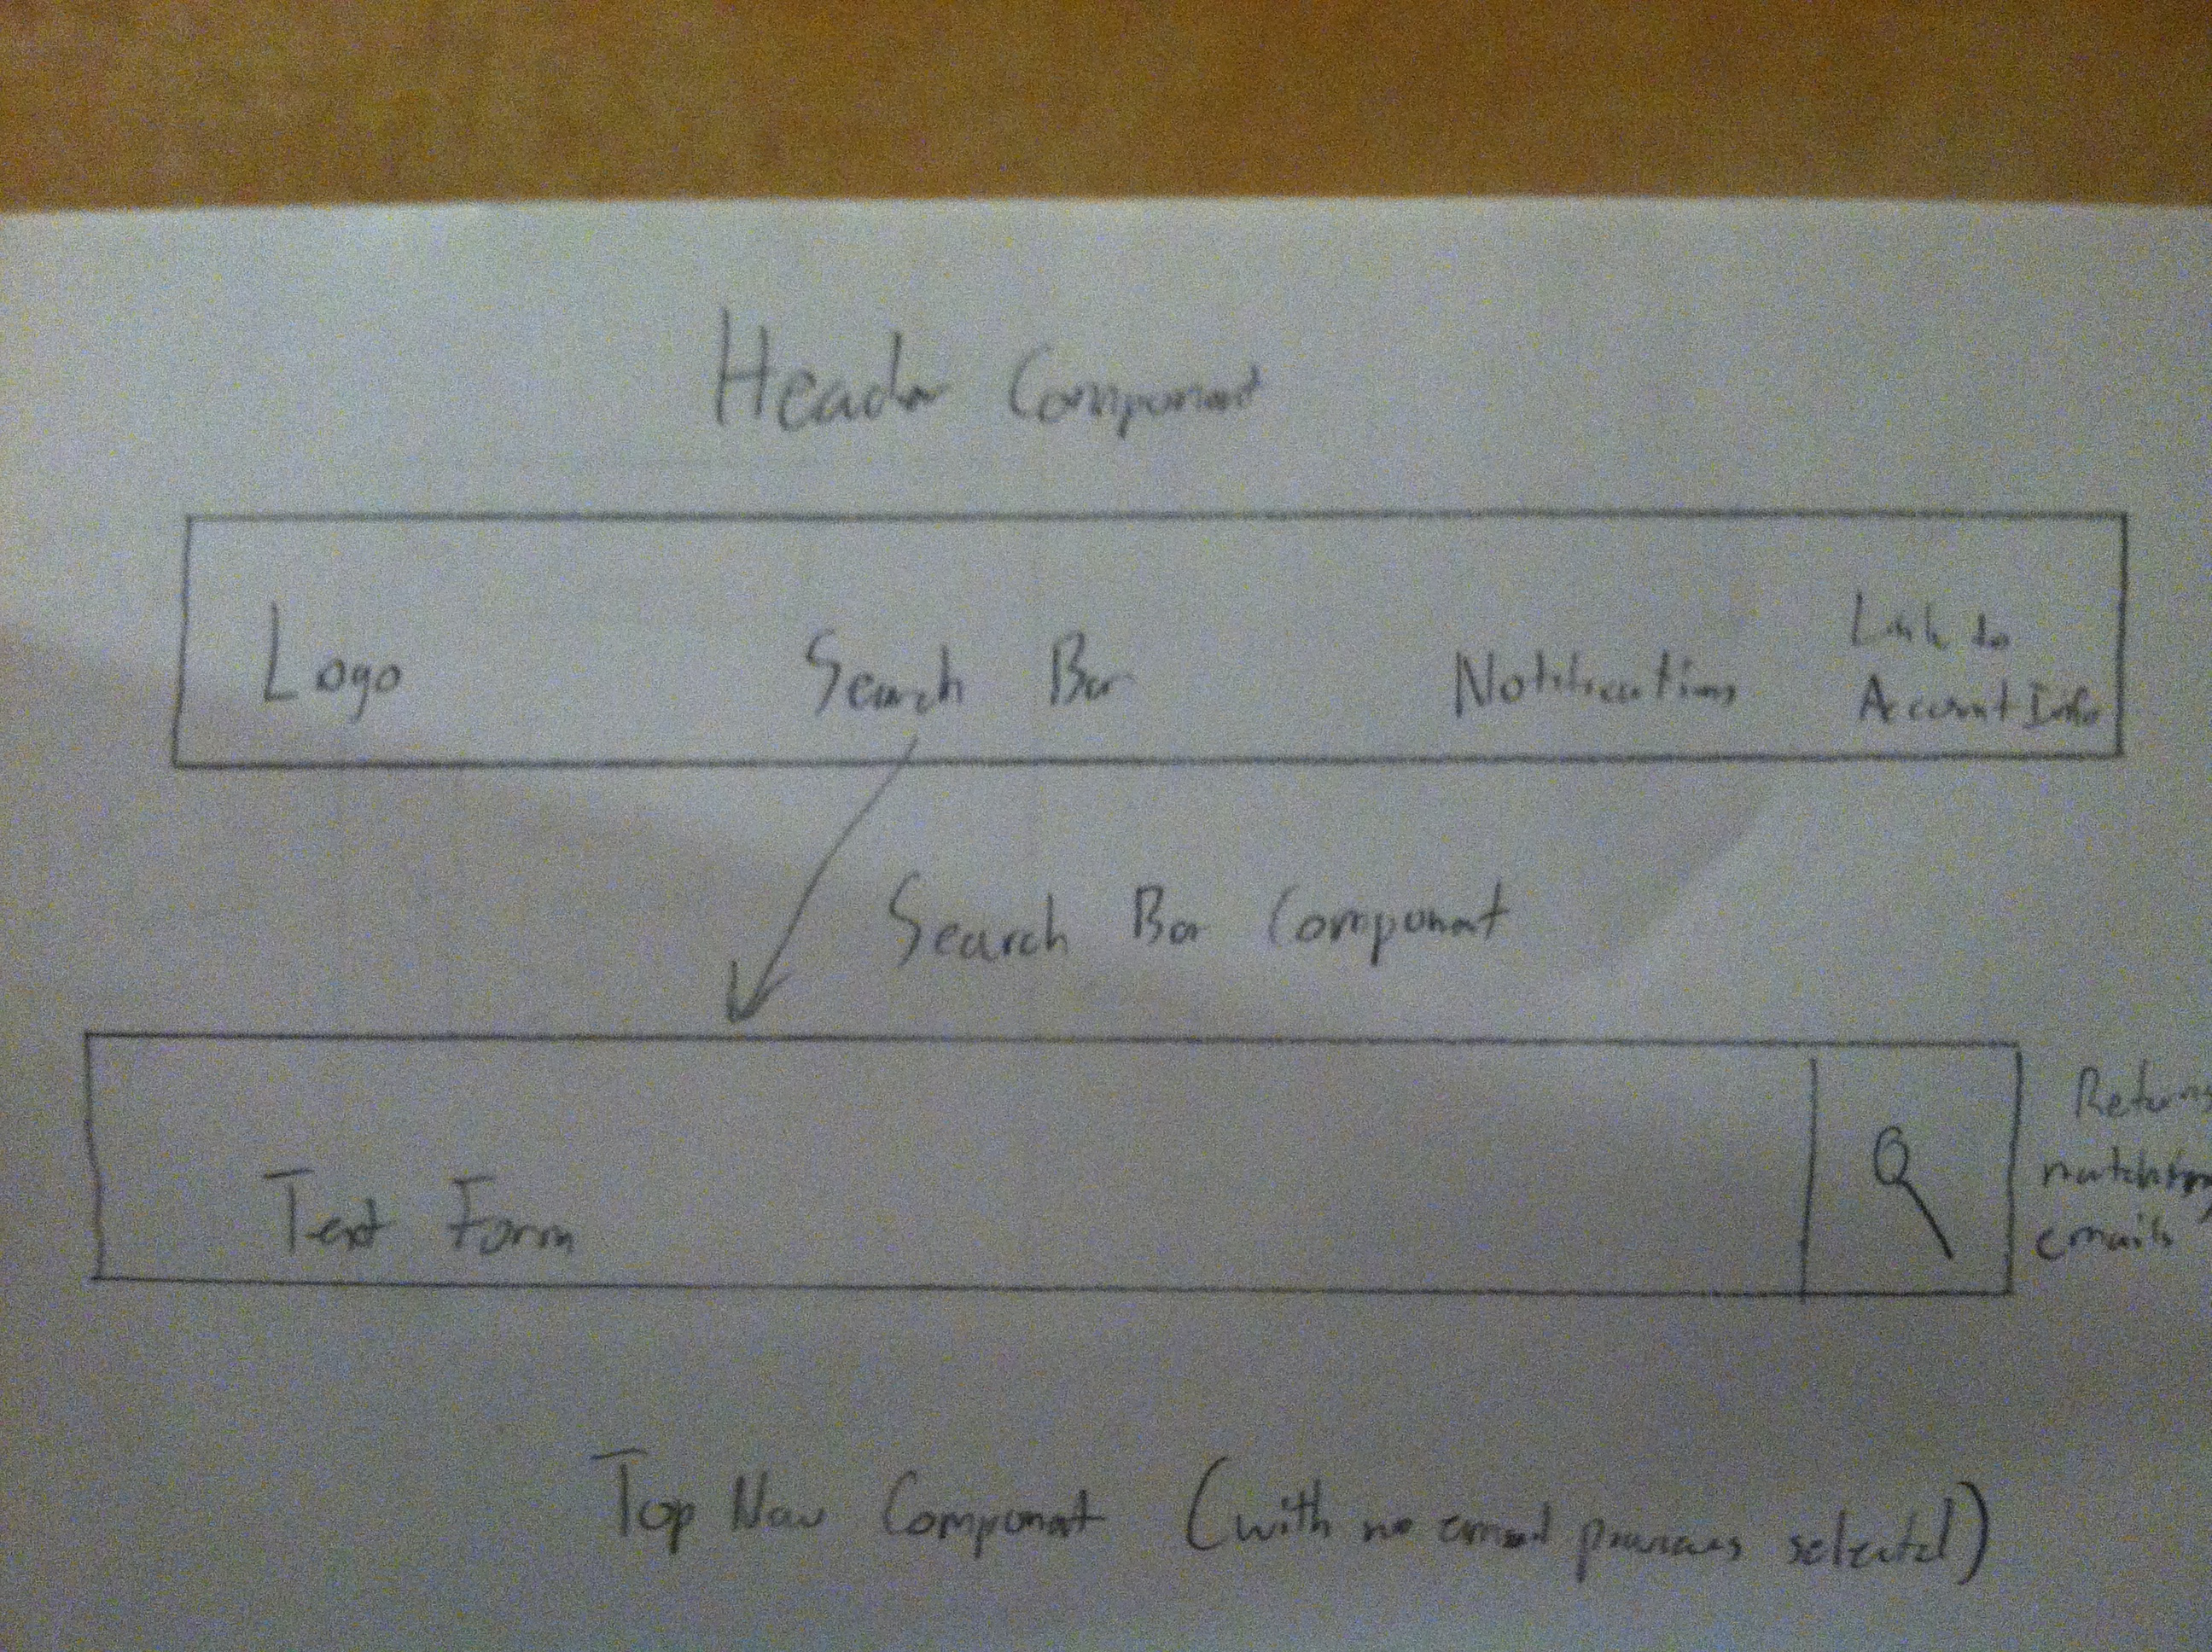 Header Component
Logo Search Bar Notifications Link to
Account Info
Search Bar Component
Text Form
Returns
matching
emails
Top Nav Component (with no email previews selected)